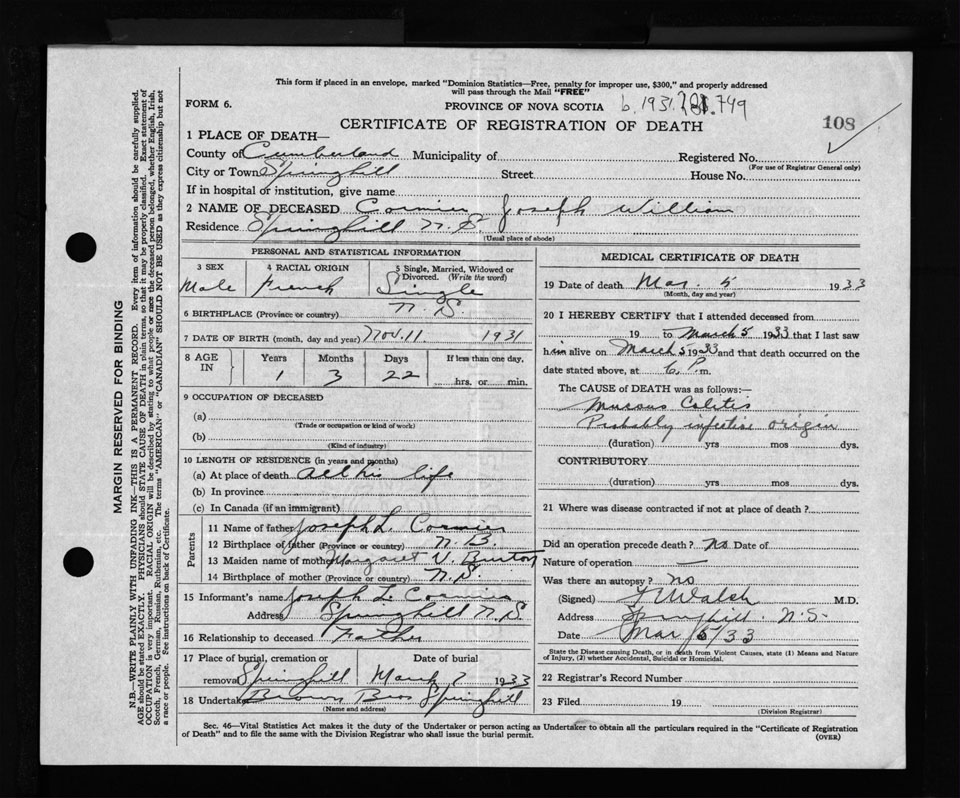 This form if placed in an envelope, marked "Dominion Statistics—Free, penalty for improper use, $300," and properly addressed
will pass through the Mail "FREE"
FORM 6.
PROVINCE OF NOVA SCOTIA
b. 1931. 749
CERTIFICATE OF REGISTRATION OF DEATH
108
1 PLACE OF DEATH—
County of Cumberland Municipality of Registered No.
(For use of Registrar General only)
City or Town Springhill Street House No.
If in hospital or institution, give name
2 NAME OF DECEASED Cormier Joseph William
Residence Springhill N.S.
(Usual place of abode)
PERSONAL AND STATISTICAL INFORMATION
3 SEX 4 RACIAL ORIGIN 5 Single, Married, Widowed or Divorced. (Write the word)
Male French Single
6 BIRTHPLACE (Province or country) N.S.
7 DATE OF BIRTH (month, day and year) Nov. 11 1931
8 AGE IN Years Months Days If less than one day,
1 3 22 hrs. or min.
9 OCCUPATION OF DECEASED
(a)
(Trade or occupation or kind of work)
(b)
(Kind of industry)
10 LENGTH OF RESIDENCE (in years and months)
(a) At place of death All his life
(b) In province
(c) In Canada (if an immigrant)
Parents
11 Name of father Joseph L. Cormier
12 Birthplace of father (Province or country) N.B.
13 Maiden name of mother Margaret V.
14 Birthplace of mother (Province or country) N.S.
15 Informant's name Joseph L. Cormier
Address Springhill N.S
16 Relationship to deceased Father
17 Place of burial, cremation or removal Springhill Date of burial March 7 1933
18 Undertaker Brown Bros Springhill
(Name and address)
MEDICAL CERTIFICATE OF DEATH
19 Date of death Mar. 5 1933
(Month, day and year)
20 I HEREBY CERTIFY that I attended deceased from
19 to March 5 1933 that I last saw
him alive on March 5 1933 and that death occurred on the
date stated above, at 6 P.m.
The CAUSE OF DEATH was as follows:—
Mucous Colitis
Probably infective origin
(duration) yrs mos dys.
CONTRIBUTORY
(duration) yrs mos dys.
21 Where was disease contracted if not at place of death?
Did an operation precede death? No Date of
Nature of operation —
Was there an autopsy? no
(Signed) Walsh M.D.
Address Springhill N.S.
Date Mar /5/33
State the Disease causing Death, or in death from Violent Causes, state (1) Means and Nature
of Injury, (2) whether Accidental, Suicidal or Homicidal.
22 Registrar's Record Number
23 Filed 19
(Division Registrar)
Sec. 46—Vital Statistics Act makes it the duty of the Undertaker or person acting as Undertaker to obtain all the particulars required in the "Certificate of Registration
of Death" and to file the same with the Division Registrar who shall issue the burial permit.
(OVER)
MARGIN RESERVED FOR BINDING
N.B.—WRITE PLAINLY WITH UNFADING INK—THIS IS A PERMANENT RECORD. Every item of information should be carefully supplied.
AGE should be stated EXACTLY. PHYSICIANS should STATE CAUSE OF DEATH in plain terms, so that it may be properly classified. Exact statement of
OCCUPATION is very important. RACIAL ORIGIN will be described by stating to what people or race the deceased person belonged, whether English, Irish,
Scotch, French, German, Russian, Ruthenian, etc. The terms "AMERICAN" or "CANADIAN" SHOULD NOT BE USED as they express citizenship but not
a race or people. See instructions on back of Certificate.